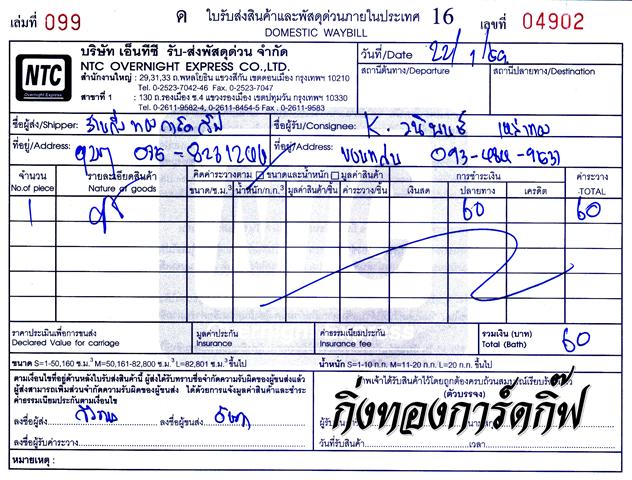 เล่มที่ 099 ค ใบรับส่งสินค้าและพัสดุด่วนภายในประเทศ 16 เลขที่ 04902
DOMESTIC WAYBILL
NTC
Overnight Express
บริษัท เอ็นทีซี รับ-ส่งพัสดุด่วน จำกัด
NTC OVERNIGHT EXPRESS CO.,LTD.
สำนักงานใหญ่ : 29,31,33 ถ.พหลโยธิน แขวงสีกัน เขตดอนเมือง กรุงเทพฯ 10210
Tel. 0-2523-7042-46 Fax. 0-2523-7047
สาขาที่ 1 : 130 ถ.รองเมือง ซ.4 แขวงรองเมือง เขตปทุมวัน กรุงเทพฯ 10330
Tel. 0-2611-9582-4, 0-2611-8454-5 Fax. 0-2611-9583
วันที่/Date 22/1/59
สถานีต้นทาง/Departure สถานีปลายทาง/Destination
ชื่อผู้ส่ง/Shipper: ชื่อผู้รับ/Consignee: K.
ที่อยู่/Address: ที่อยู่/Address: ขอนแก่น
จำนวน รายละเอียดสินค้า คิดค่าระวางตาม ขนาดและน้ำหนัก มูลค่าสินค้า การชำระเงิน ค่าระวาง
No.of piece Nature of goods ขนาด/ซ.ม.³ น้ำหนัก/ก.ก. มูลค่าสินค้า/ชิ้น ค่าระวาง/ชิ้น เงินสด ปลายทาง เครดิต TOTAL
1 60 60
ราคาประเมินเพื่อการขนส่ง มูลค่าประกัน ค่าธรรมเนียมประกัน รวมเงิน (บาท)
Declared Value for carriage Insurance Insurance fee Total (Bath) 60
ขนาด S=1-50,160 ซ.ม.³ M=50,161-82,800 ซ.ม.³ L=82,801 ซ.ม.³ ขึ้นไป น้ำหนัก S=1-10 ก.ก. M=11-20 ก.ก. L=20 ก.ก. ขึ้นไป
ตามเงื่อนไขที่อยู่ด้านหลังใบรับส่งสินค้านี้ ผู้ส่งได้รับทราบข้อจำกัดความรับผิดของผู้ขนส่งแล้ว
ผู้ส่งสามารถเพิ่มส่วนจำกัดความรับผิดของผู้ขนส่ง ได้ด้วยการแจ้งมูลค่าสินค้าและชำระ
ค่าธรรมเนียมประกันตามเงื่อนไข
ลงชื่อผู้ส่ง ลงชื่อผู้ขนส่ง
ลงชื่อผู้รับค่าระวาง
พเจ้าได้รับสินค้าไว้โดยถูกต้องครบถ้วนสมบูรณ์เรียบร้อย
(ตัวบรรจง)
กิ่งทองการ์ดกิ๊ฟ
วันที่รับสินค้า เวลา
หมายเหตุ :